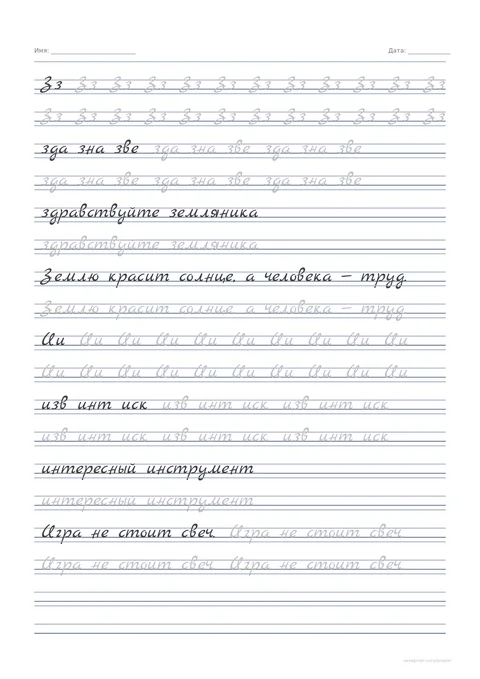 Имя: Дата:
Зз Зз Зз Зз Зз Зз Зз Зз Зз Зз Зз Зз
Зз Зз Зз Зз Зз Зз Зз Зз Зз Зз Зз Зз
зда зна зве зда зна зве зда зна зве
зда зна зве зда зна зве зда зна зве
здравствуйте земляника
здравствуйте земляника
Землю красит солнце, а человека — труд.
Землю красит солнце а человека — труд
Ии Ии Ии Ии Ии Ии Ии Ии Ии Ии
Ии Ии Ии Ии Ии Ии Ии Ии Ии Ии
изв инт иск изв инт иск изв инт иск
изв инт иск изв инт иск изв инт иск
интересный инструмент
интересный инструмент
Игра не стоит свеч. Игра не стоит свеч
Игра не стоит свеч Игра не стоит свеч